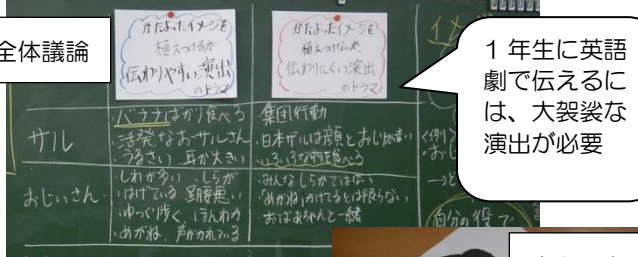 全体議論
かたよったイメージを
植えつけるが
伝わりやすい演出
のドラマ
かたよったイメージを
植えつけないが、
伝わりにくい演出
のドラマ
1年生に英語
劇で伝えるに
は、大袈裟な
演出が必要
サル
・バナナばかり食べる
・活発なおサルさん
・うるさい 耳が大きい
・集団行動
・日本ザルは顔とおしりが赤い
・いろいろな物を食べる
おじいさん
・しわが多い ・しらが
・はげている
・ゆっくり歩く、ほんわか
・めがね、声がかれている
・みんなしらがではない
・めがねかけてるとは限らない
・おばあちゃんと一緒
<例>
自分の役で